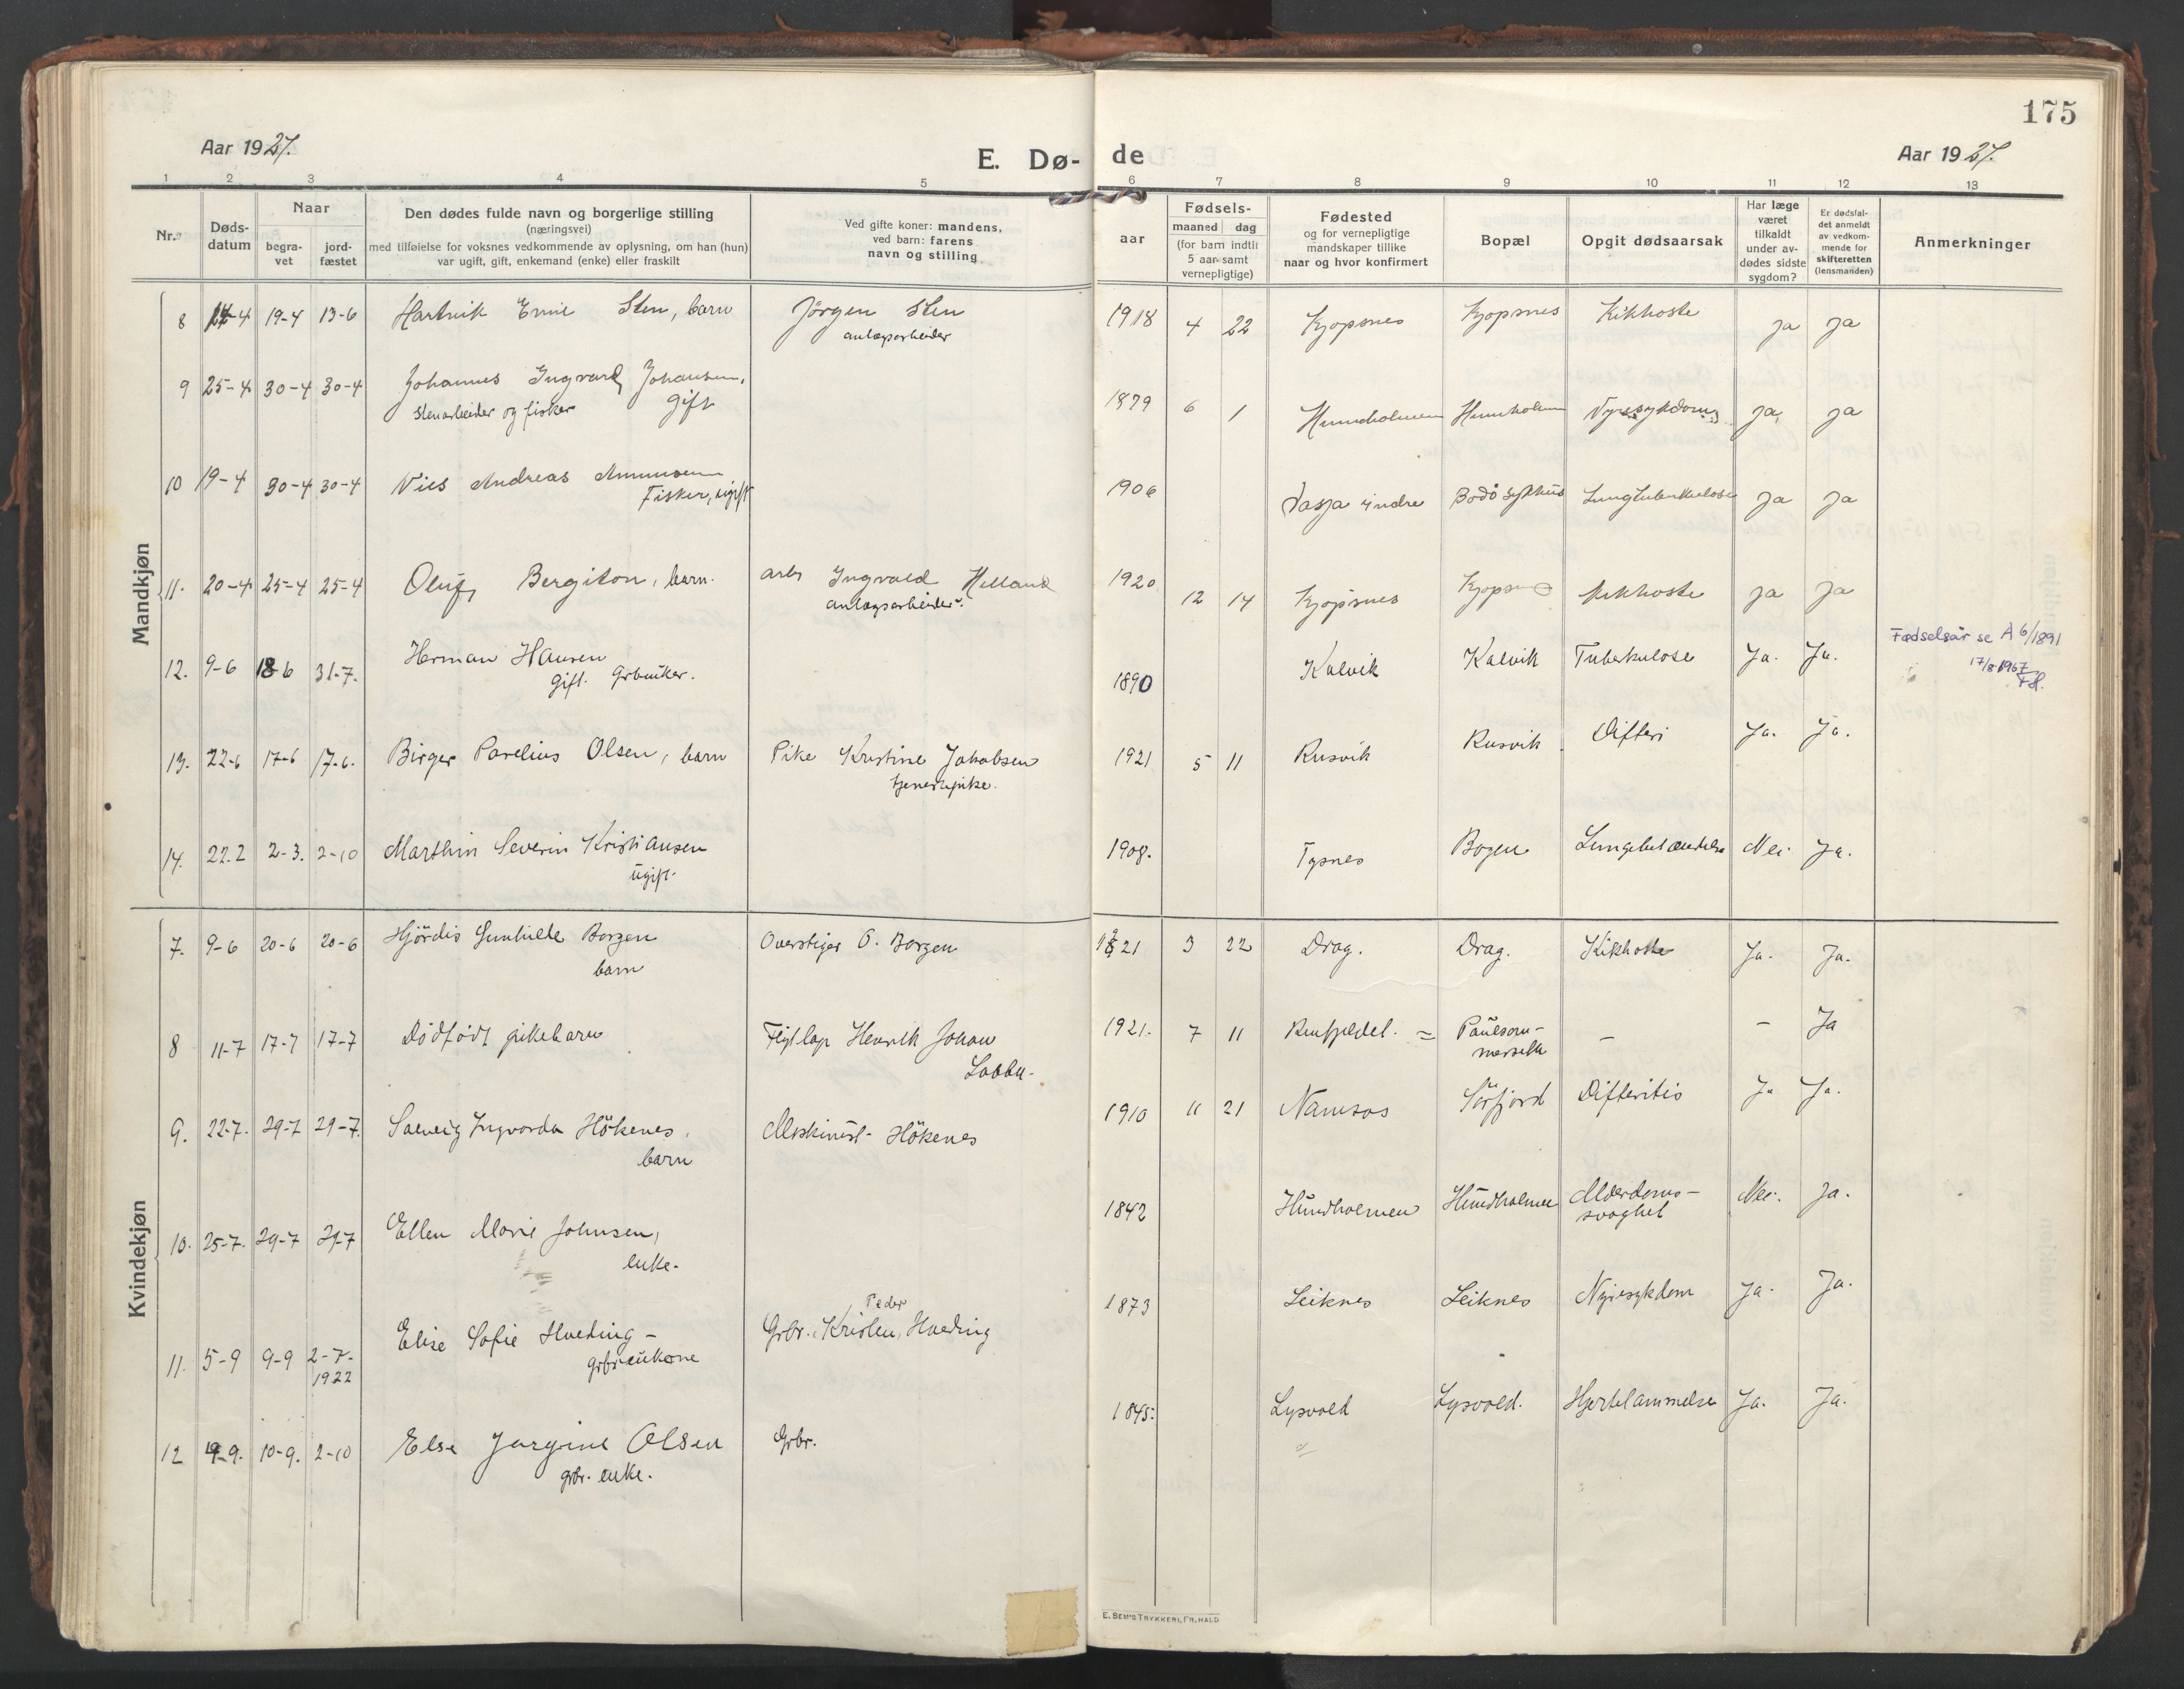 175
Aar 1921.
E. Dø-
de
Aar 1921.
1 2 3 4 5 6 7 8 9 10 11 12 13
Nr.
Døds-
datum
Naar
begra-
vet
jord-
fæstet
Den dødes fulde navn og borgerlige stilling
(næringsvei)
med tilføielse for voksnes vedkommende av oplysning, om han (hun)
var ugift, gift, enkemand (enke) eller fraskilt
Ved gifte koner: mandens,
ved barn: farens
navn og stilling
Fødsels-
aar
maaned dag
(for barn indtil
5 aar samt
vernepligtige)
Fødested
og for vernepligtige
mandskaper tillike
naar og hvor konfirmert
Bopæl
Opgit dødsaarsak
Har læge
været
tilkaldt
under av-
dødes sidste
sygdom?
Er dødsfal-
det anmeldt
av vedkom-
mende for
skifteretten
(lensmanden)
Anmerkninger
Mandkjøn
8 14-4 19-4 13-6 Hartvik Sten, barn Jörgen Sten 1918 4 22 Kjopsnes Kjopsnes Kikhoste Ja Ja
anlægsarbeider
9 25-4 30-4 30-4 Johannes Ingvard Johansen, 1879 6 1 Hundholmen Hundholmen Nyresykdom Ja Ja
Stenarbeider og fisker gift
10 19-4 30-4 30-4 Nils Andreas Amundsen 1906 Vasja indre Bodö sykhus Lungtuberkulose Ja Ja
Fisker, ugift
11. 20-4 25-4 25-4 Oluf, Bergiton, barn. arb. Ingvald Helland 1920 12 14 Kjopsnes Kjopsnes Kikhoste Ja Ja
anlægsarbeider.
12. 9-6 18-6 31-7. Herman Hansen 1890 Kalvik Kalvik Tuberkulose Ja. Ja. Fødselsår se A 6/1891
gift. Grbruker. 17/8 1967
13. 22-6 17-6 17-6. Birger Parelius Olsen, barn Pike Kristine Jakobsen 1921 5 11 Rusvik Rusvik Difteri Ja. Ja.
tjenestepike.
14. 22.2 2-3. 2-10 Marthin Severin Kristiansen 1908. Tysnes Bogen Lungebetændelse Nei Ja.
ugift.
Kvindekjøn
7. 9-6 20-6 20-6 Hjördis Gunhilde Borgen Overstiger O. Borgen 1921 3 22 Drag. Drag. Kikhoste Ja. Ja.
barn
8 11-7 17-7 17-7 Dödfödt pikebarn Flytlap Henrik Johan 1921. 7 11 = Paulsom- – – Ja
Labba.
9. 22-7. 29-7 29-7. Solveig Ingvarda Hökenes, Maskinist- Hökenes 1910 11 21 Namsos Sörfjord Difteritis Ja Ja.
barn
10. 25-7. 29-7 29-7 Ellen Marie Johnsen, 1842 Hundholmen Hundholmen Alderdoms- Nei. Ja.
enke. svaghet
11. 5-9 9-9 2-7- Elise Sofie Hveding – Grbr. Kristen Peder Hveding 1873 Leiknes Leiknes Nyresykdom Ja. Ja.
1922 grbrukone
12 4-9. 10-9. 2-10 Else Jørgine Olsen Grbr. 1845. Lysvold Lysvold. Hjertelammelse Ja. Ja.
grbr. enke.
E. SEM'S TRYKKERI, FR.HALD